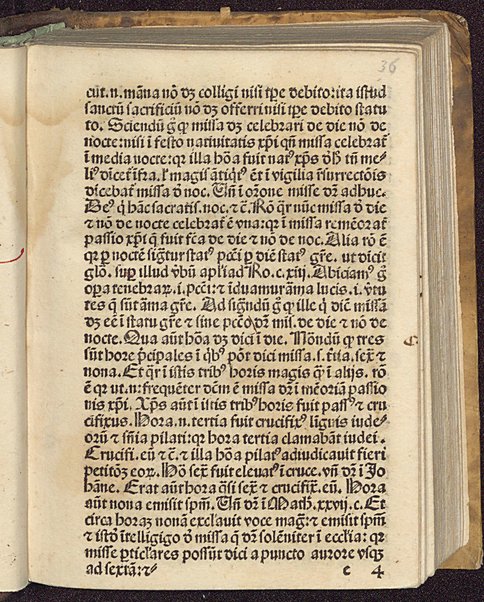 36
cut.n. mãna nõ dꝫ colligi nisi tꝑe debito: ita istud
sanctũ sacrificiũ nõ dꝫ offerri nisi tꝑe debito statu
to. Sciendũ g̃ ꝙ missa dꝫ celebrari de die nõ de
nocte: nisi ĩ festo natiuitatis xp̃i qñ missa celebrat̃
ĩ media nocte: qr illa hõa fuit natꝰ xp̃s dñs tñ me-
liꝰ dicet̃ ĩfra. ĩ vigilia r̃surrectõis
dicebat̃ missa õ noc. Tñ ĩ orõne misse dr̃ adhuc.
Deꝰ q̇ hãc sacratis. noc. ⁊ c̃. Rõ qr nũc missa õ die
⁊ nõ de nocte celebrat̃ ẽ vna: qr ĩ missa remẽorat̃
passio xp̃i q̃ fuit fc̃a de die ⁊ nõ de noc. Alia rõ ẽ
qr ꝑ noctẽ sig̃tur statꝰ pctĩ ꝑ diẽ statꝰ gr̃e. vt dicit
glõ. suꝑ illud v̓bũ apl̃i ad Ro. c. xiij. Abiciamꝰ g̃
oꝑa tenebraꝝ. i. pctĩ: ⁊ ĩduamur ãma lucis. i. v̓tu
tes q̃ sũt ãma gr̃e. Ad sig̃ndũ g̃ ꝙ ille q̇ dic̃ missã
dꝫ eẽ ĩ statu gr̃e ⁊ sine pctõ dꝫ mis. de die ⁊ nõ de
nocte. Qua aũt hõa dꝫ dici ĩ die. Nõndũ ꝙ tres
sũt hore p̃cipales ĩ qͥbꝰ põt dici missa. s. t̃tia. sex̃ ⁊
nona. Et q̃r ĩ istis tribꝰ horis magis q̃ꝫ ĩ alijs. rõ
ẽ qr vt. n: frequẽter dcm̃ ẽ missa dr̃ ĩ mẽoriã passio
nis xp̃i. Xp̃s aũt ĩ istis tribꝰ horis fuit passꝰ ⁊ cru
cifixus. Hora .n. tertia fuit crucifixꝰ lĩguis iude-
orũ ⁊ sñĩa pilati: qr hora tertia clamabãt iudei.
Crucifi. eũ ⁊ c̃. ⁊ illa hõa pilatꝰ adiudicauit fieri
petitõꝫ eoꝝ. Hõ sex̃ fuit eleuatꝰ ĩ cruce. vñ dr̃ ĩ Jo
hãne. Erat aũt hora q̃si sex̃ ⁊ crucifix. eũ. Hora
aũt nona emisit spm̃. Vñ dr̃ ĩ Math. xxvij. c. Et
circa horaꝫ nonã exclauit voce mag̃: ⁊ emisit spm̃
⁊ istõ ĩtelligit̃ õ missa q̃ dr̃ solẽniter ĩ ecclĩa: qr
misse ꝑticlares possũt dici a puncto aurore vsqꝫ
ad sextã: ⁊-
c 4